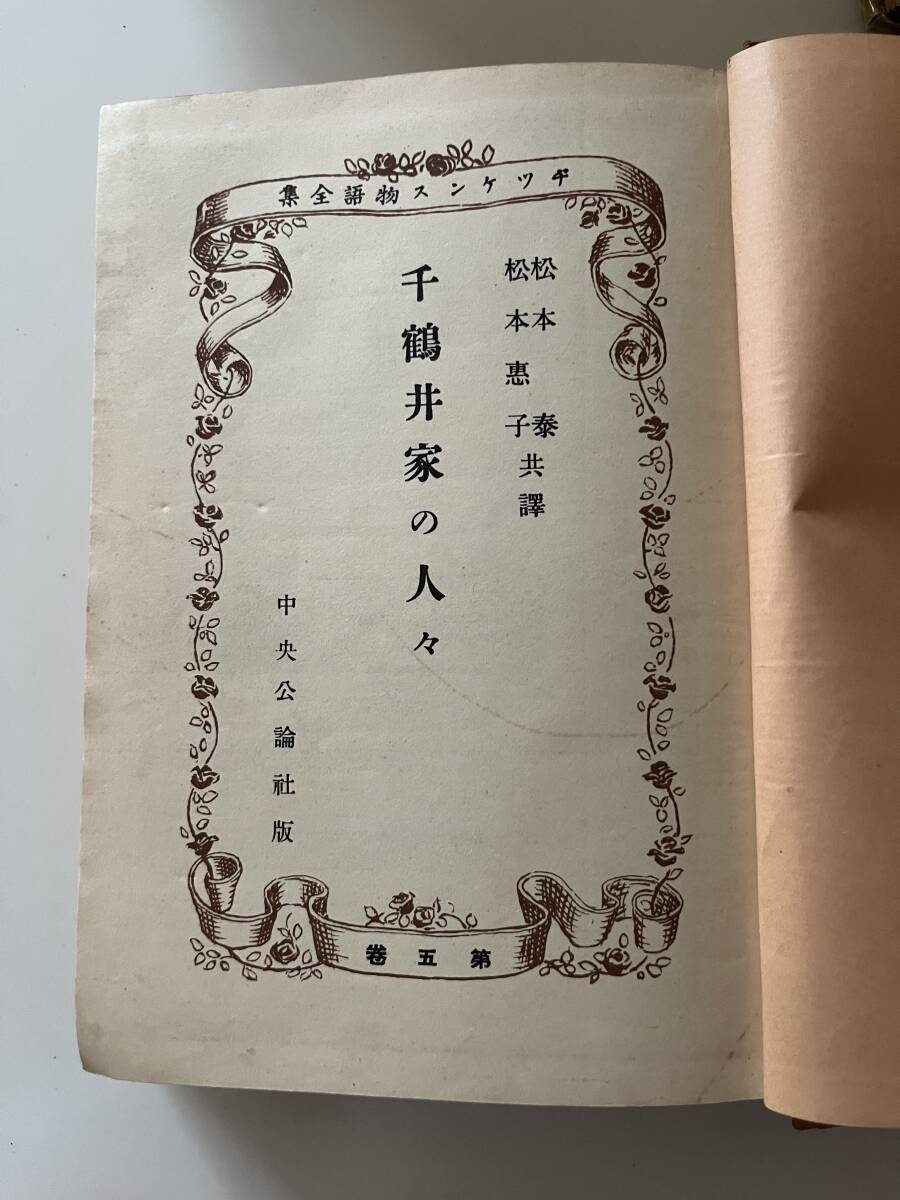 ヂツケンス物語全集
松本泰
松本惠子
共譯
千鶴井家の人々
中央公論社版
第五卷